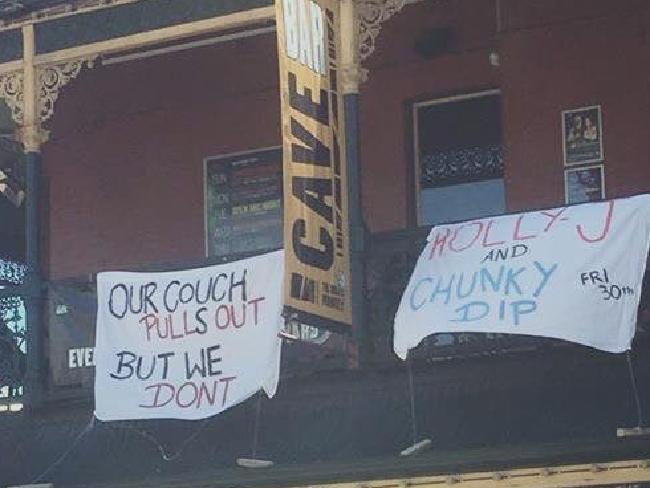 BAR
CAVE
OUR COUCH
PULLS OUT
BUT WE
DONT
HOLLY-J
AND
CHUNKY
DIP
FRI
30TH
EVE